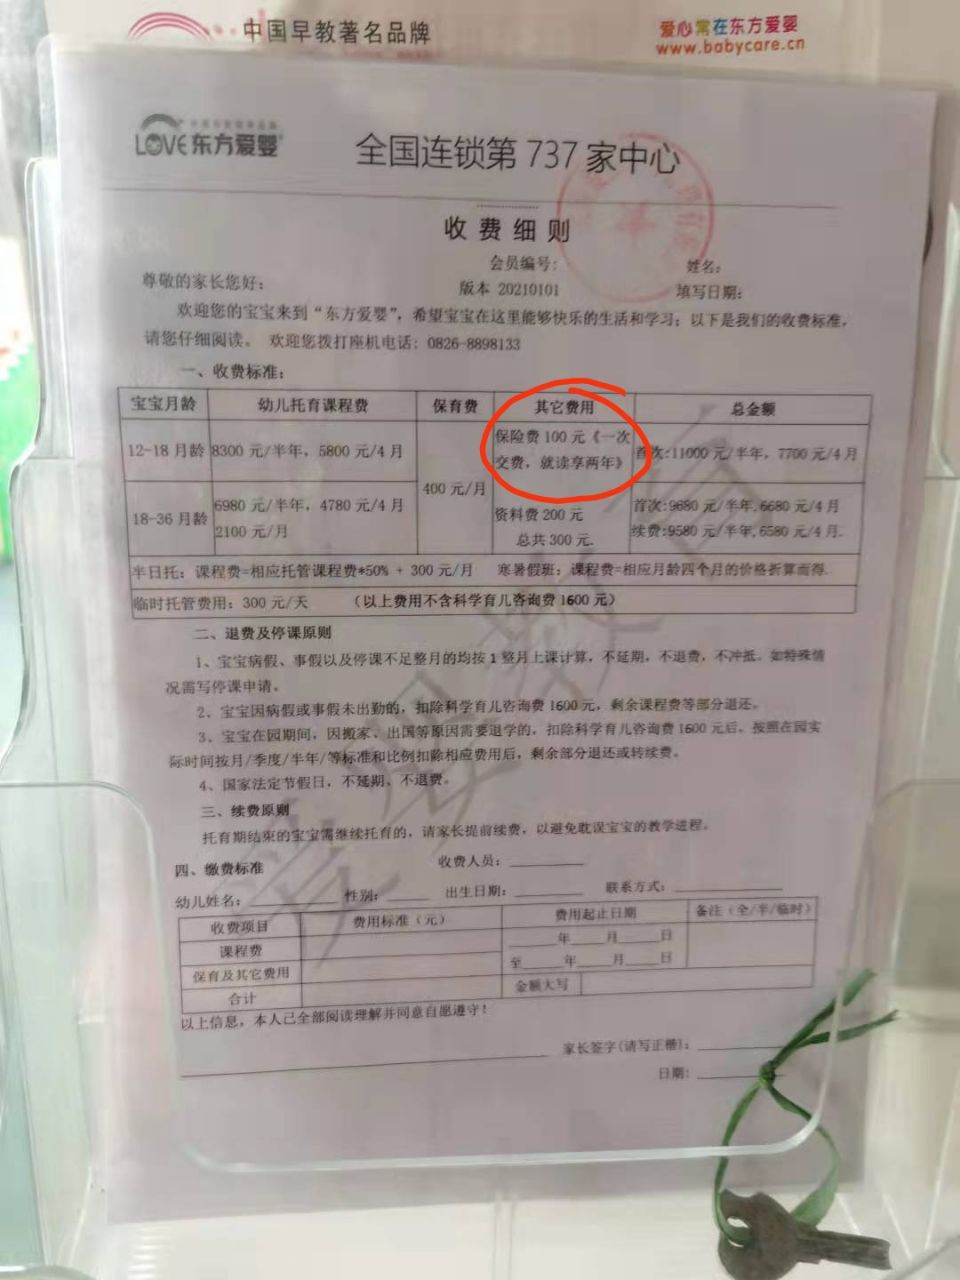 中国早教著名品牌
爱心常在东方爱婴
www.babycare.cn
LOVE东方爱婴
全国连锁第 737 家中心
收费细则
会员编号:
姓名:
尊敬的家长您好:
版本 20210101
填写日期:
欢迎您的宝宝来到“东方爱婴”,希望宝宝在这里能够快乐的生活和学习;以下是我们的收费标准,
请您仔细阅读。 欢迎您拨打座机电话: 0826-8898133
一、收费标准:
宝宝月龄 幼儿托育课程费 保育费 其它费用 总金额
12-18 月龄 8300 元/半年, 5800 元/4 月
400 元/月
保险费 100 元《一次
交费, 就读享两年》
首次:11000 元/半年, 7700 元/4 月
18-36 月龄
6980 元/半年, 4780 元/4 月
2100 元/月
资料费 200 元
总共 300 元.
首次:9680 元/半年,6680 元/4 月
续费:9580 元/半年,6580 元/4 月.
半日托: 课程费=相应托管课程费*50% + 300 元/月 寒暑假班: 课程费=相应月龄四个月的价格折算而得.
临时托管费用: 300 元/天 (以上费用不含科学育儿咨询费 1600 元)
二、退费及停课原则
1、宝宝病假、事假以及停课不足整月的均按 1 整月上课计算, 不延期, 不退费, 不冲抵。如特殊情
况需写停课申请。
2、宝宝因病假或事假未出勤的, 扣除科学育儿咨询费 1600 元, 剩余课程费等部分退还。
3、宝宝在园期间, 因搬家、出国等原因需要退学的, 扣除科学育儿咨询费 1600 元后, 按照在园实
际时间按月/季度/半年/等标准和比例扣除相应费用后, 剩余部分退还或转续费。
4、国家法定节假日, 不延期、不退费。
三、续费原则
托育期结束的宝宝需继续托育的, 请家长提前续费, 以避免耽误宝宝的教学进程。
四、缴费标准
收费人员:
幼儿姓名: 性别: 出生日期: 联系方式:
收费项目 费用标准（元） 费用起止日期 备注（全/半/临时）
课程费
年 月 日
至 年 月 日
保育及其它费用
合计
金额大写
以上信息, 本人已全部阅读理解并同意自愿遵守!
家长签字(请写正楷):
日期: